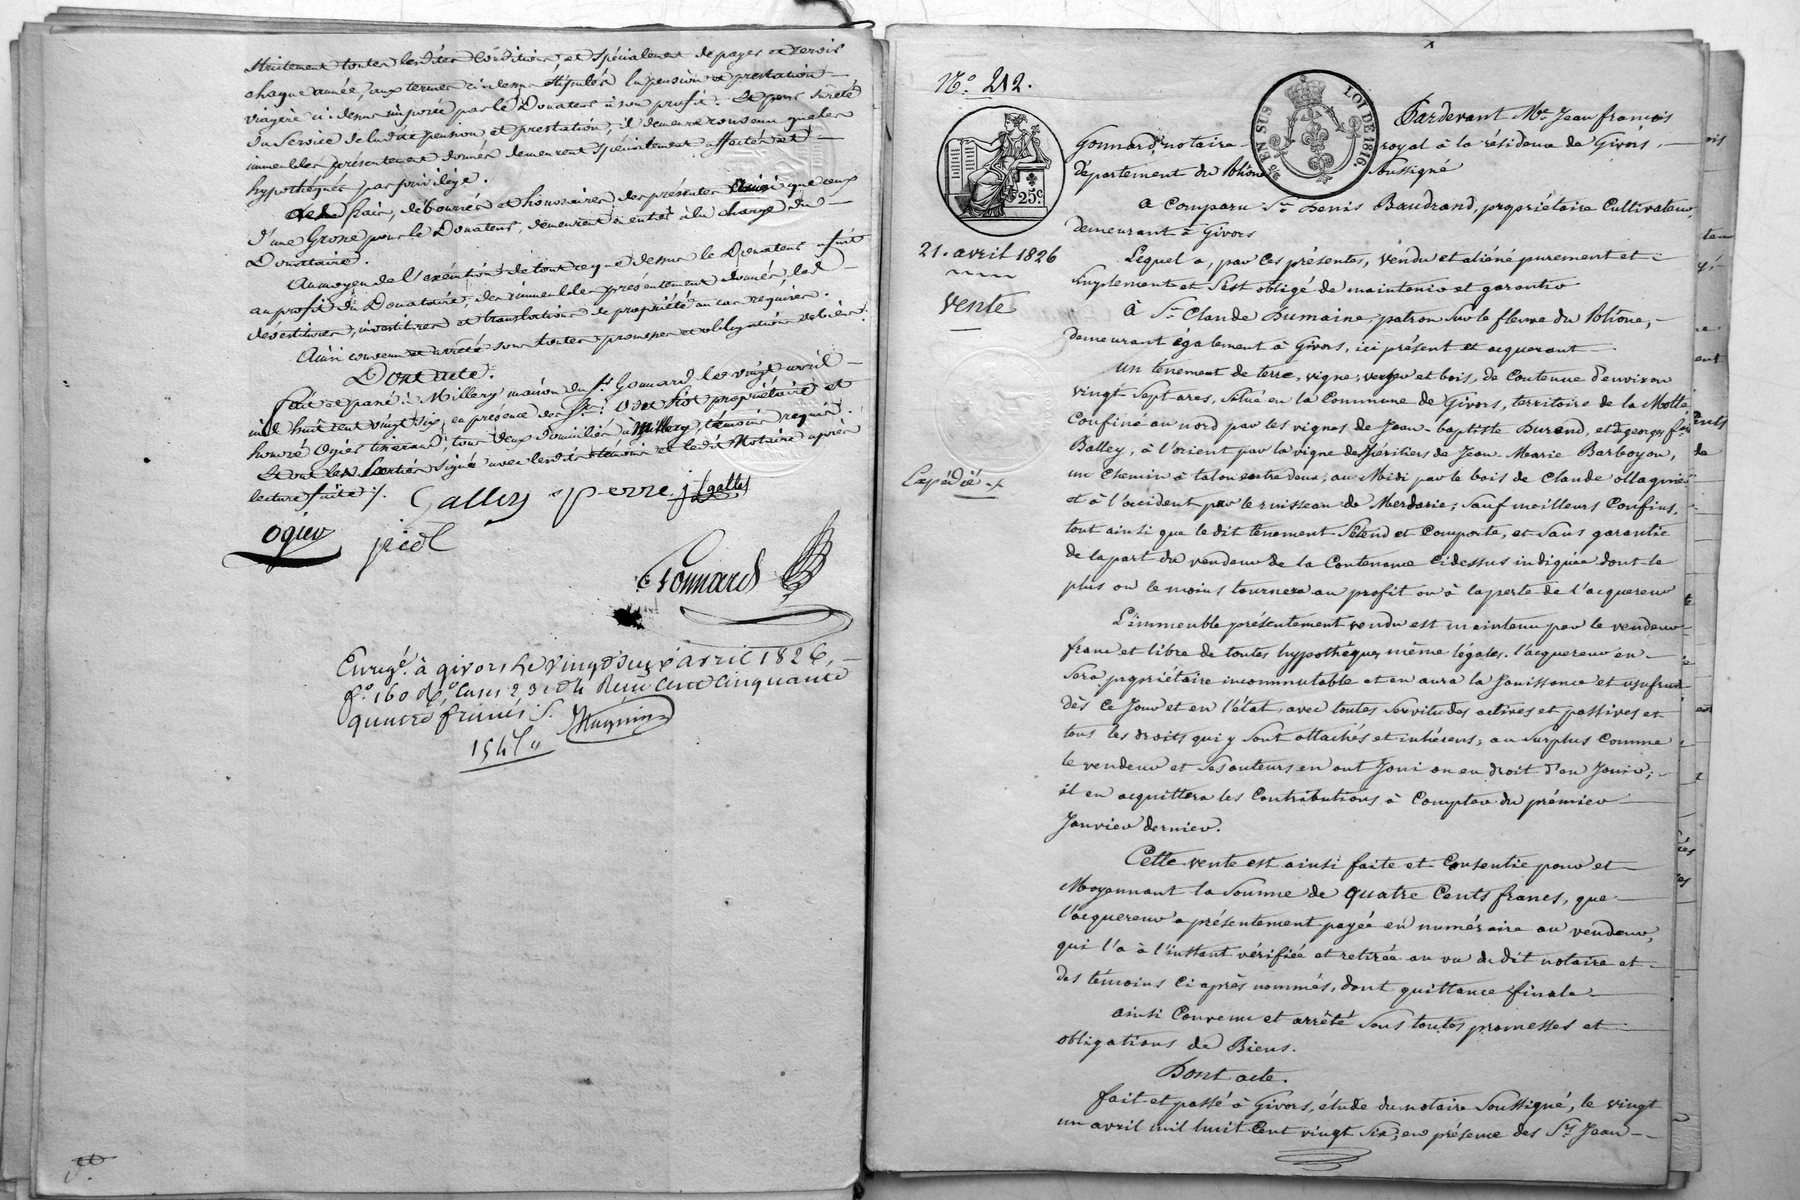 strictement toutes lesdites conditions et spécialement de payer et servir
chaque année, aux termes ci dessus stipulés la pension et prestation
viagère ci dessus imposée par le Donateur à son profit. Et pour sûreté
du service de ladite pension et prestation, il demeure convenu que les
immeubles présentement donnés demeurent spécialement affectés et
hypothéqués par privilège.
frais, déboursés et honoraires des présentes ainsi que ceux
d'une Grosse pour le Donateur, demeurent en entier à la charge du
Donataire.
Au moyen de l'exécution de tout ce que dessus le Donateur
au profit du Donataire, des immeubles présentement donnés,
dévestitures, investitures et translations de propriété au cas requises.
Ainsi convenu et arrêté sous toutes promesses et obligations de biens.
Dont acte.
fait et passé à Millery, maison du Sr. Gonnard le vingt avril
mil huit cent vingt six, en présence des Srs. propriétaire et
honoré Ogier tisserand, tous deux domiciliés à Millery, témoins requis.
signé avec lesdits témoins et ledit Notaire après
lecture faite ./.
Gallery pierre j. galler
ogier
Gonnard
Enregé. à givors le vingt deux avril 1826,
fo. 160 Ro. cases 2 3 et 4 Reçu cent cinquante
quatre francs
154 f. "
No. 212.
25 EN SUS
LOI DE 1816.
25c.
Pardevant Me. Jean françois
Gonnard, notaire royal à la résidence de Givors,
département du Rhône soussigné
21. avril 1826
a comparu Sr. Denis Baudrand, propriétaire Cultivateur
demeurant à Givors
vente
Lequel a, par ces présentes, vendu et aliéné purement et
simplement et s'est obligé de maintenir et garantir
à Sr. Claude Dumaine, patron sur le fleuve du Rhône,
demeurant également à Givors, ici présent et acquerant
un tènement de terre, vigne, verger et bois, de contenue d'environ
vingt sept ares, situé en la Commune de Givors, territoire de la Motte
Confiné au nord par les vignes de Jean-baptiste Durand, et de georges
Balley, à l'orient par la vigne des héritiers de Jean-Marie Barboyon,
Expédié
un chemin à talon entre deux, au Midi par le bois de Claude ollagnier
et à l'occident par le ruisseau de Merdarie; sauf meilleurs Confins,
tout ainsi que le dit tènement s'étend et comporte, et sans garantie
de la part du vendeur de la contenance cidessus indiquée dont le
plus ou le moins tournera au profit ou à la perte de l'acquereur
L'immeuble présentement vendu est maintenu par le vendeur
franc et libre de toutes hypothèques même légales. l'acquereur en
sera propriétaire incommutable et en aura la jouissance et usufruit
dès ce jour et en l'état, avec toutes servitudes actives et passives et
tous les droits qui y sont attachés et inhérens; au surplus comme
le vendeur et ses auteurs en ont joui ou eu droit d'en jouir;
il en acquittera les Contributions à compter du prémier
Janvier dernier.
Cette vente est ainsi faite et consentie pour et
Moyennant la somme de quatre cents francs, que
l'acquereur a présentement payée en numéraire au vendeur,
qui l'a à l'instant vérifiée et retirée au vu du dit notaire et
des témoins ci après nommés, dont quittance finale
ainsi convenu et arrêté sous toutes promesses et
obligations de Biens.
Dont acte.
fait et passé à Givors, étude du notaire soussigné, le vingt
un avril mil huit cent vingt six; en présence des Srs. Jean